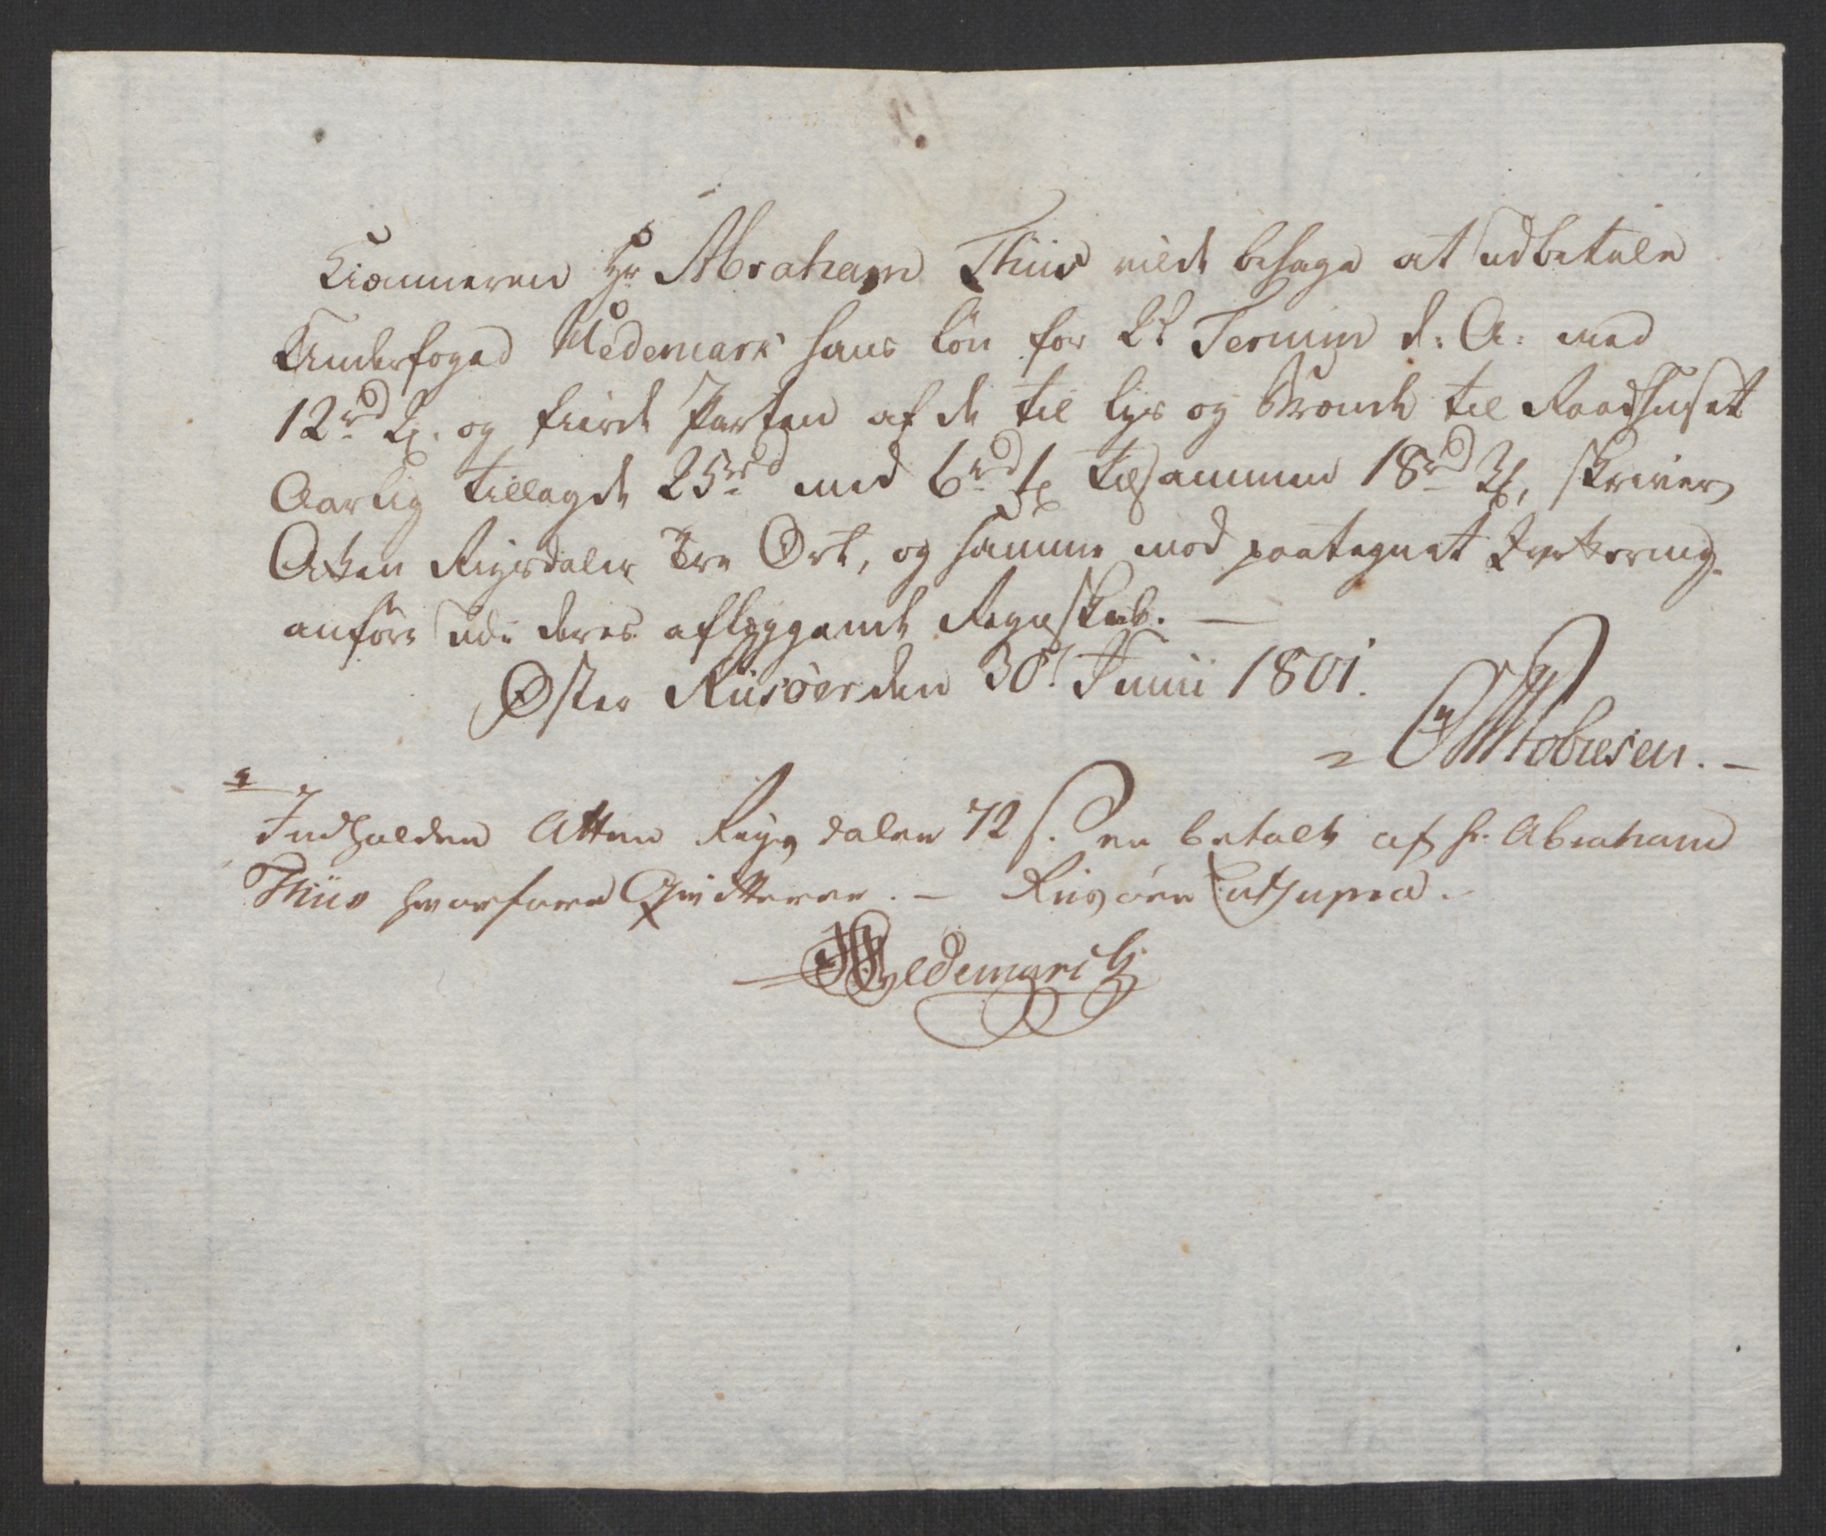 Kiæmneren Hr Abraham Thiis vilde behage at udbetale
Underfoged Hedemark hans Løn for 2d Termin d: A: med
12rd og fierde Parten af de til Lys og Brænde til Raadhuset
Aarlig tillagde 25rd med 6rd 1 tilsammen 18rd 3, skriver
Atten Rigsdaler Tre Ort, og samme mod paategnet Qvittering
anføre udi deres aflæggende Regnskab. —
Øster Riisøer den 30t Junii 1801.
Tobiesen. —
Indholden Atten Rigs daler 72 s. er betalt af Hr Abraham
Thiis hvorfore Qvitterer. — Riisøer ut supra.
Hedemarck